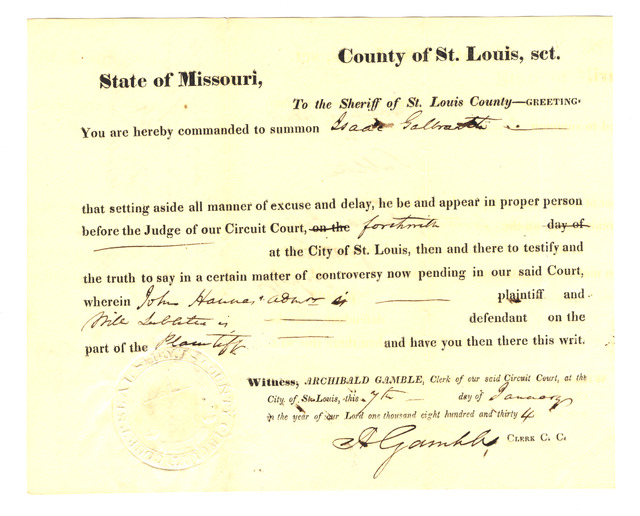 County of St. Louis, sct.
State of Missouri,
To the Sheriff of St. Louis County—GREETING.
You are hereby commanded to summon Isaac Galbraith
that setting aside all manner of excuse and delay, he be and appear in proper person
before the Judge of our Circuit Court, on the forthwith day of
at the City of St. Louis, then and there to testify and
the truth to say in a certain matter of controversy now pending in our said Court,
wherein John Hannas admor is plaintiff and
Will Sublette is defendant on the
part of the Plaintiff and have you then there this writ.
Witness, ARCHIBALD GAMBLE, Clerk of our said Circuit Court, at the
City of St. Louis, this 7th day of January
in the year of our Lord one thousand eight hundred and thirty 4
A Gamble, CLERK C. C.